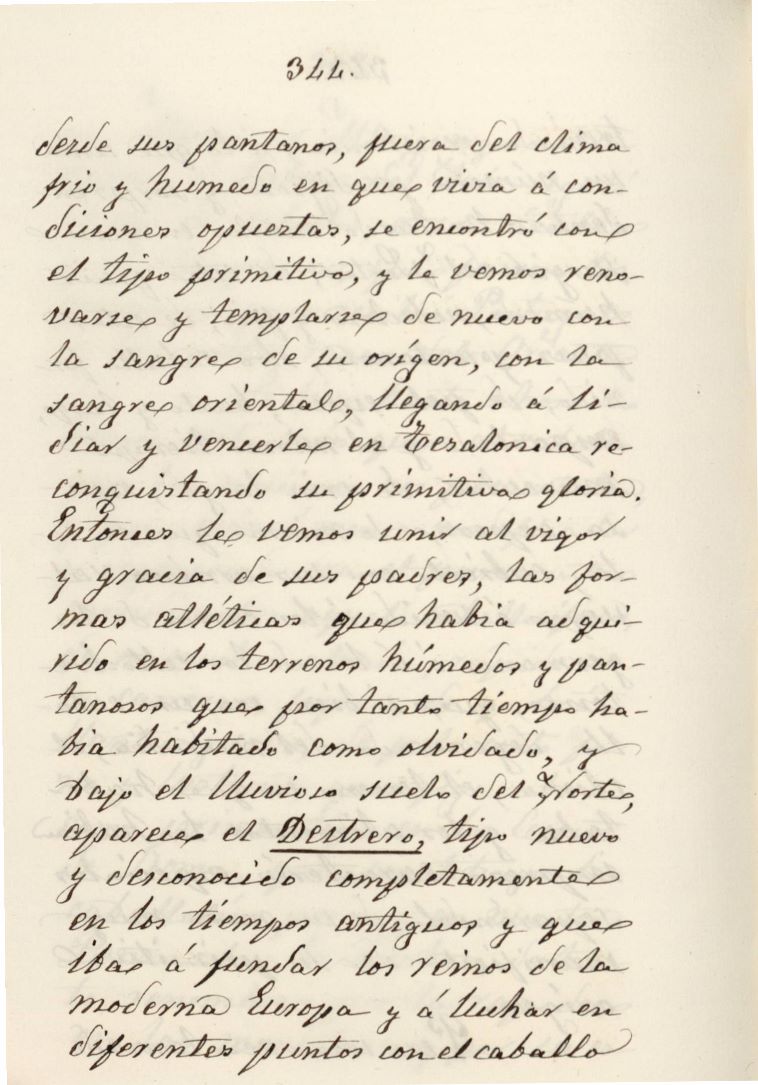 344.
desde sus pantanos, fuera del clima
frio y humedo en que vivia á con-
diciones opuestas, se encontró con
el tipo primitivo, y le vemos reno-
varse y templarse de nuevo con
la sangre de su orígen, con la
sangre oriental, llegando á li-
diar y vencerle en Tesalonica re-
conquistando su primitiva gloria.
Entonces le vemos unir al vigor
y gracia de sus padres, las for-
mas atléticas que habia adqui-
rido en los terrenos húmedos y pan-
tanosos que por tanto tiempo ha-
bia habitado como olvidado, y
bajo el lluvioso suelo del Norte,
aparece el Destrero, tipo nuevo
y desconocido completamente
en los tiempos antiguos y que
iba á fundar los reinos de la
moderna Europa y á luchar en
diferentes puntos con el caballo